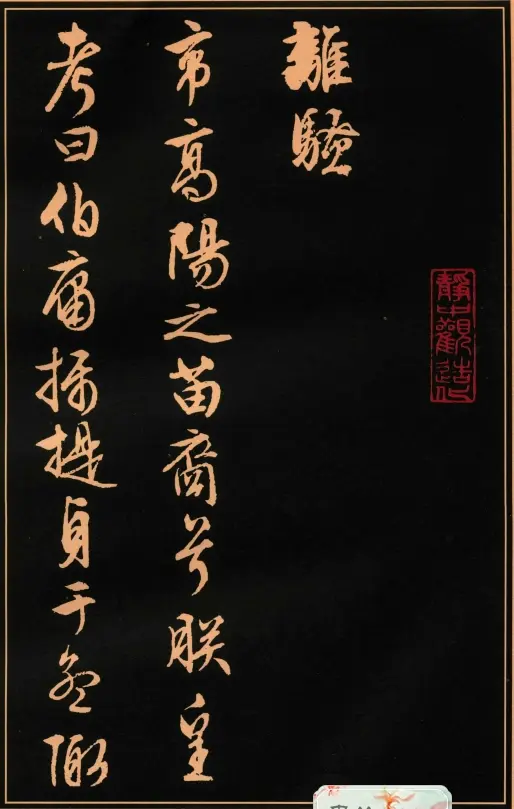 靜中觀造化
離騷
帝高陽之苗裔兮朕皇
考曰伯庸攝提貞于孟陬